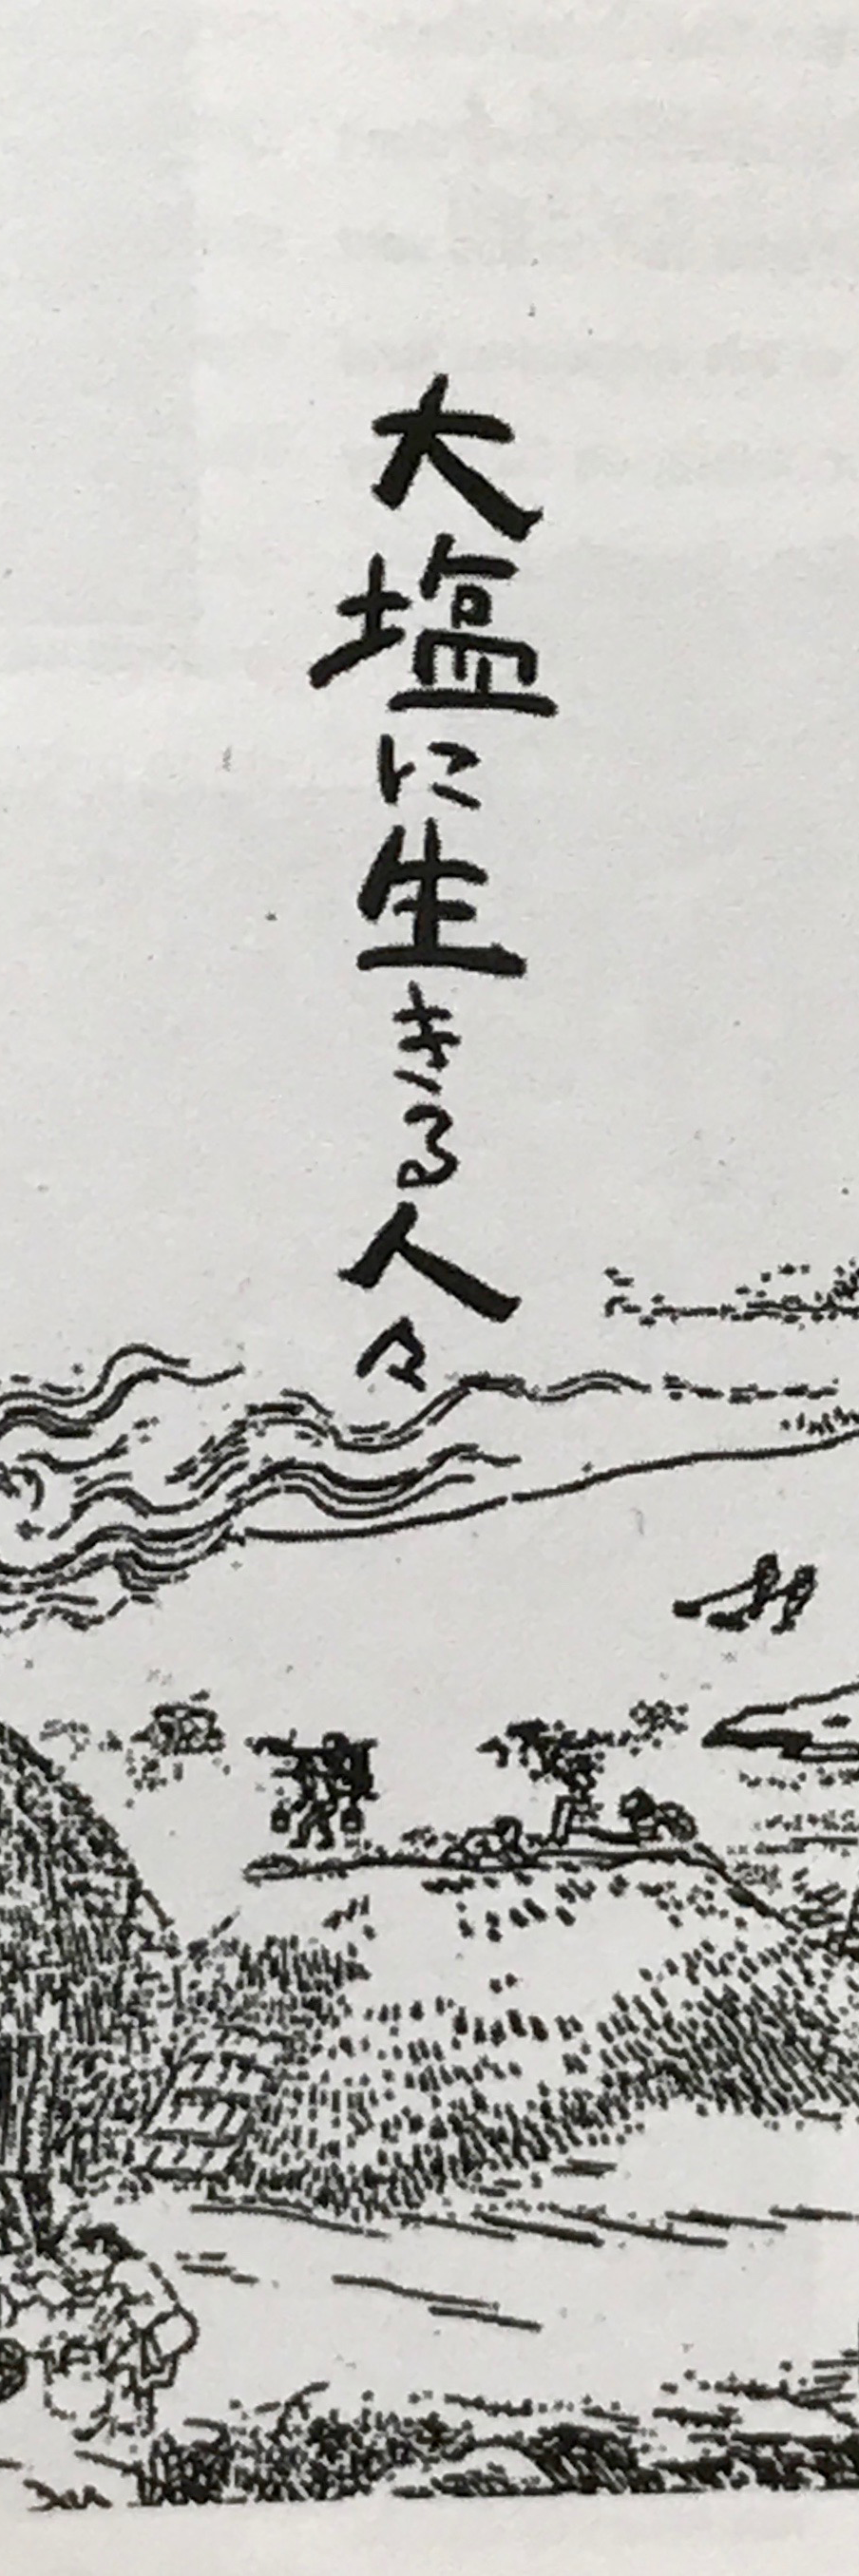 大塩に生きる人々